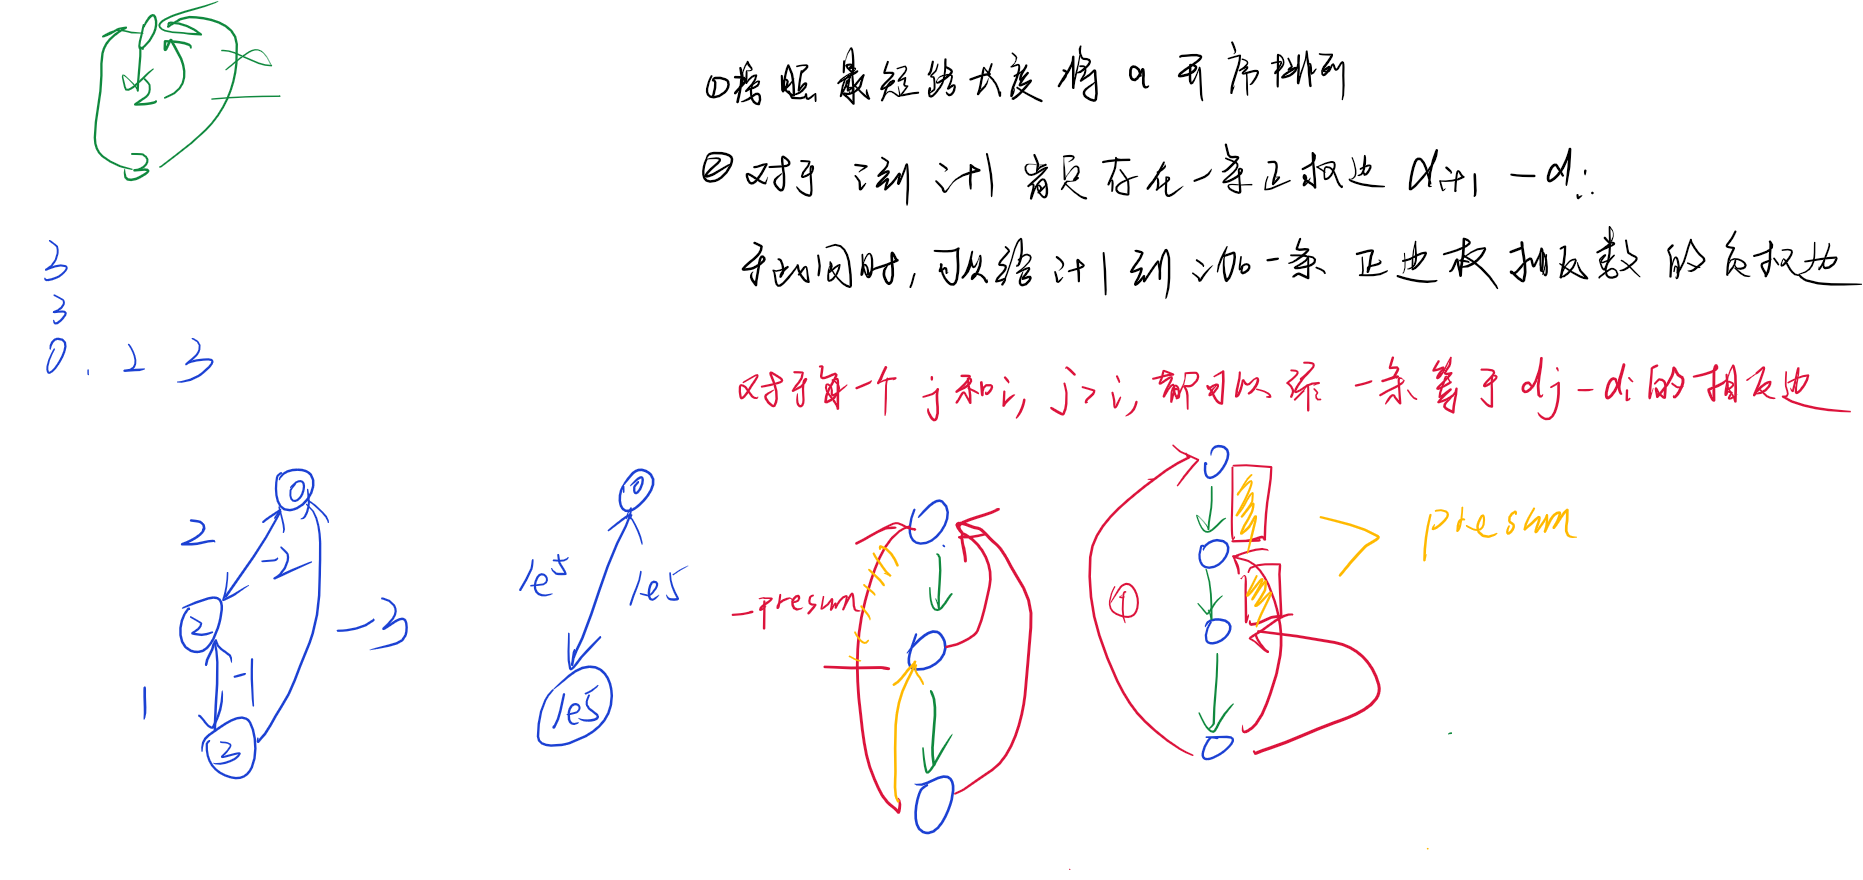 2
3
①按照最短路长度将a升序排列
②对于i到i+1肯定存在一条正权边 di+1 - di
于此同时,可以给i+1到i加一条正边权相反数的负权边
3
3
0. 2 3
对于每一个j和i, j>i, 都可以添一条等于dj-di的相反边
0
2
-2
2
1
-1
3
-3
0
1e5
1e5
1e5
-presum
①
presum